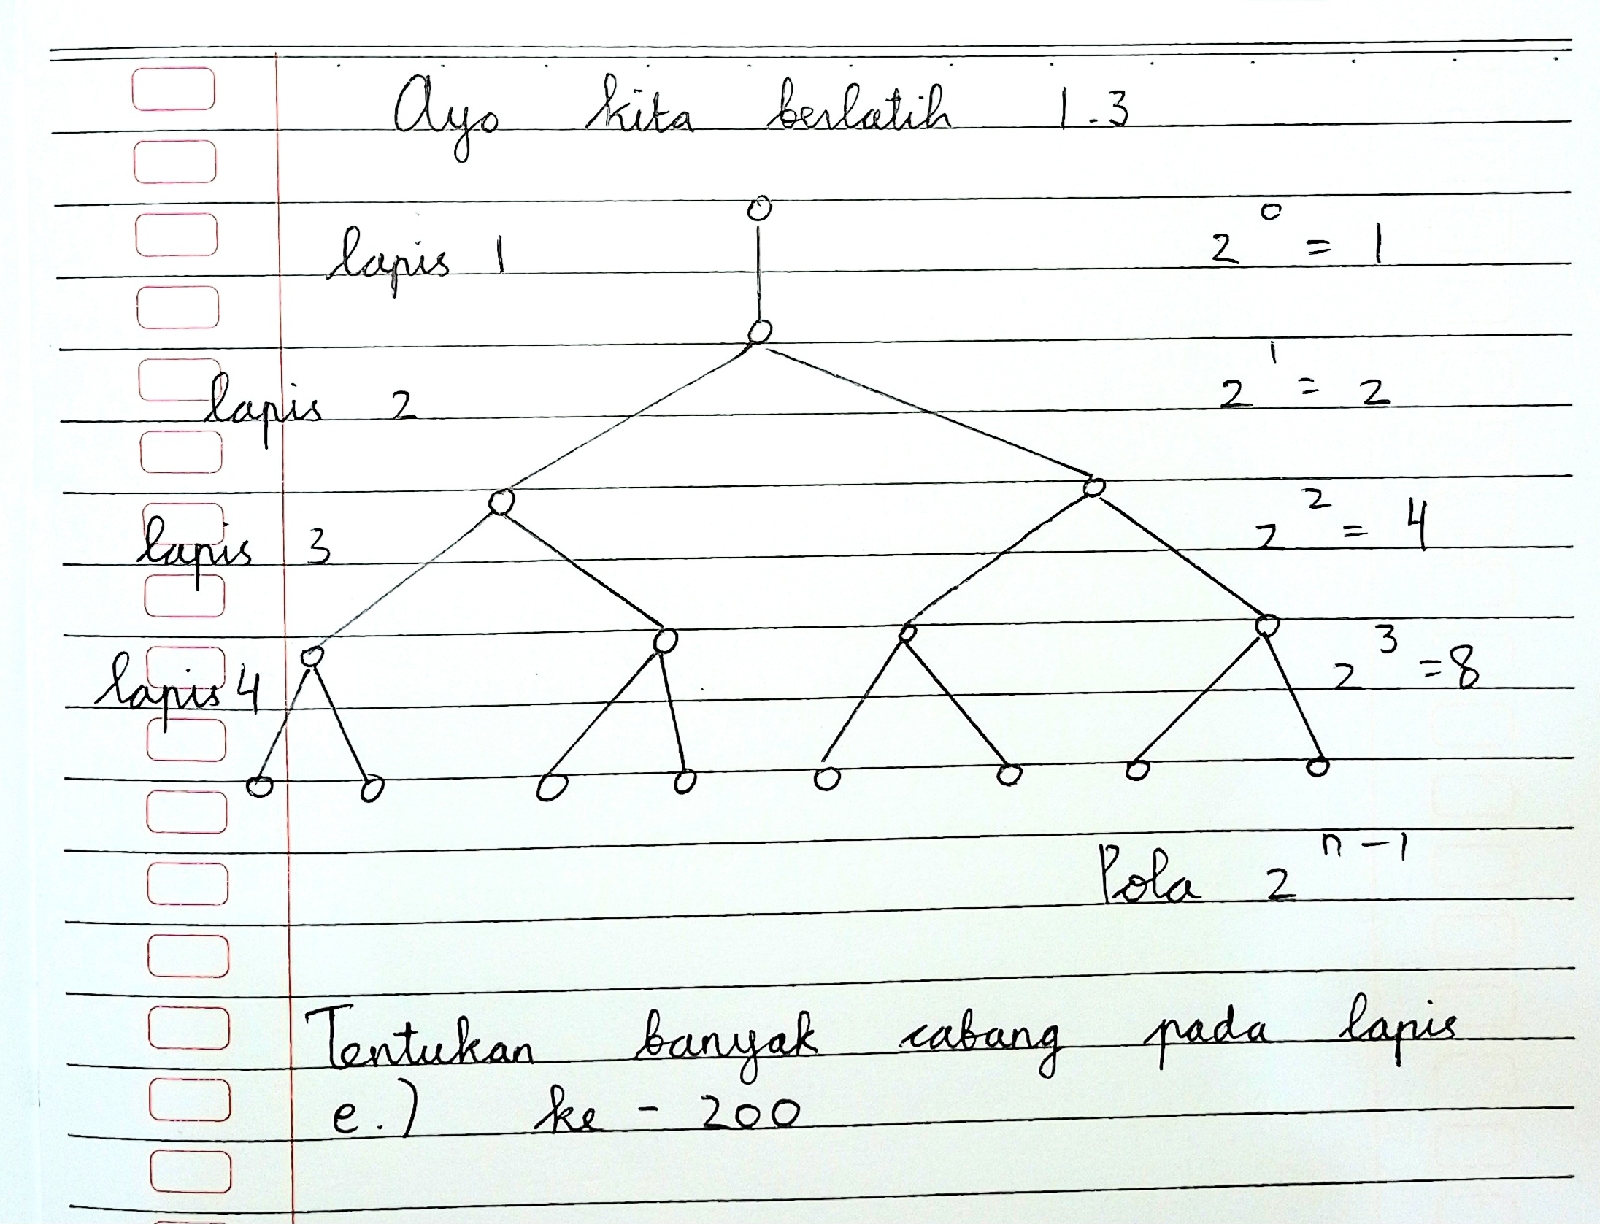 Ayo kita berlatih 1.3
lapis 1 2⁰ = 1
lapis 2 2¹ = 2
lapis 3 2² = 4
lapis 4 2³ = 8
Pola 2ⁿ⁻¹
Tentukan banyak cabang pada lapis
e.) ke - 200